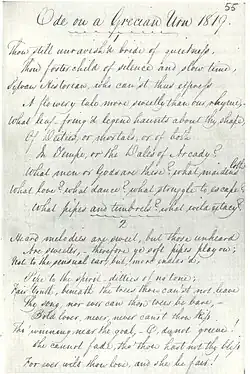 55
Ode on a Grecian Urn 1819.
1
Thou still unravish'd bride of quietness,
Thou foster child of silence and slow time,
Sylvan Historian, who canst thus express
A flowery tale more sweetly than our rhyme;
What leaf-fring'd legend haunts about thy shape
Of Deities, or mortals, or of both
In Tempe, or the Dales of Arcady?
What men or Gods are these? what maidens loth
What love? what dance? what struggle to escape?
What pipes and timbrels? what wild extacy?
2
Heard melodies are sweet, but those unheard
Are sweeter, therefore ye soft pipes play on;
Not to the sensual ear, but, more endear'd,
Pipe to the spirit ditties of no tone;
Fair Youth, beneath the trees thou can'st not leave
Thy song, nor ever can those trees be bare,—
Bold lover, never, never canst thou kiss
Tho' winning, near the goal,—O, do not grieve!
She cannot fade, tho' thou hast not thy bliss
For ever wilt thou love, and she be fair!